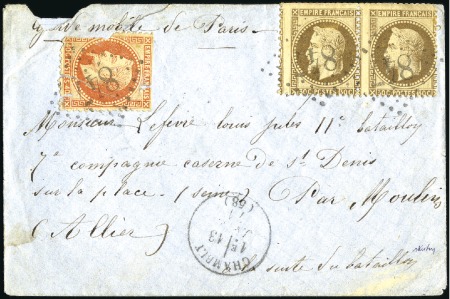 Gde mobile de Paris
EMPIRE FRANÇAIS EMPIRE FRANÇAIS
Monsieur Lefevre louis jules 11e bataillon
7e compagnie caserne de St Denis
sur la place. (Seine) Par Moulins
(Allier)
CHAMBLY
13
(68)
suite du bataillon